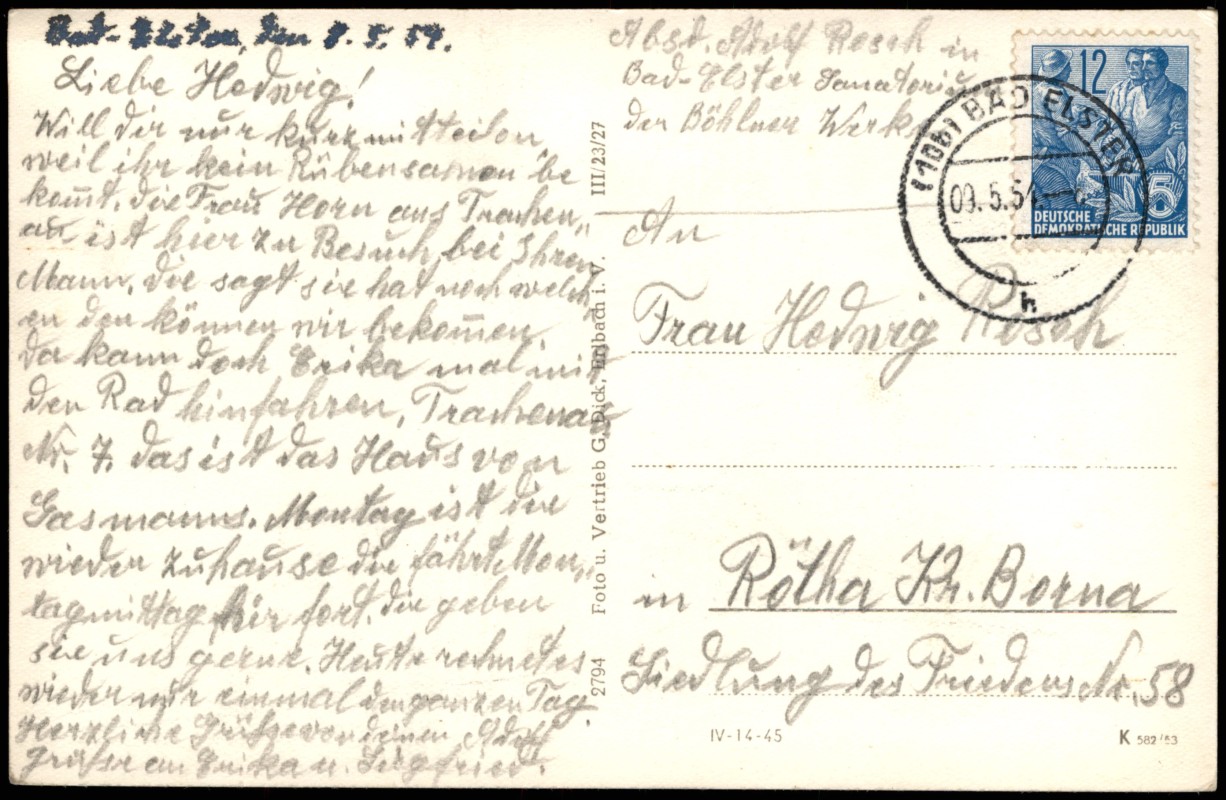 Bad-Elster, den 8. 5. 54.
Liebe Hedwig!
Will dir nur kurz mitteilen,
weil ihr kein Rübensamen be
kom̅t, die Frau Horn aus Trachen„
au ist hier zu Besuch, bei Ihren
Mann, die sagt sie hat noch welch
en den können wir bekom̅en,
da kann doch Erika mal mit
den Rad hinfahren, Trachenau
Nr. 7. das ist das Haus von
Gasmanns. Montag ist die
wieder zuhause die fährt Mon„
tagmittag hir fort. die geben
sie uns gerne. Heute rechnet es
wieder nur einmal den ganzen Tag
Herzliche Grüße von deinen Adolf
Grüße an Erika u. Siegfried.
2794 Foto u. Vertrieb G. Dick, Erlbach i. V. III/23/27
Absd. Adolf Resch in
Bad-Elster Sanatorium
der Böhlner Werke
12
DEUTSCHE
DEMOKRATISCHE REPUBLIK
5
(10b) BAD ELSTER
09. 5. 54
h
An
Frau Hedwig Resch
in Rötha Kr. Borna
Siedlung des Friedens Nr. 58
IV-14-45
K 582/53